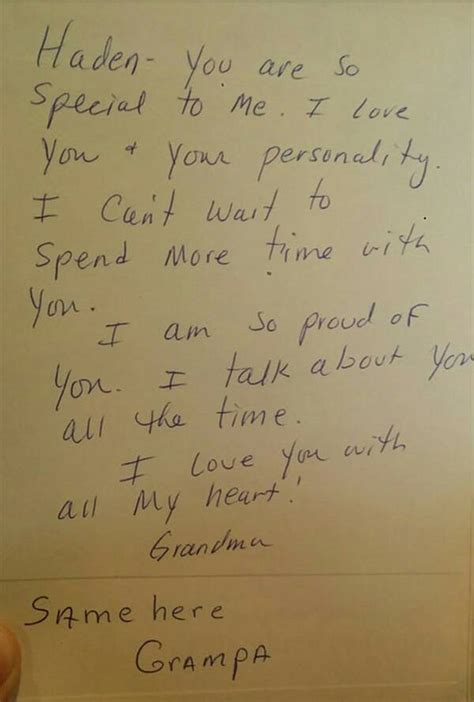 Haden- You are so
Special to Me. I Love
You + Your personality.
I Can't Wait to
Spend More time with
You.
I am so proud of
You. I talk about You
all the time.
I Love You with
all My heart!
Grandma
SAme here
GrAmpA